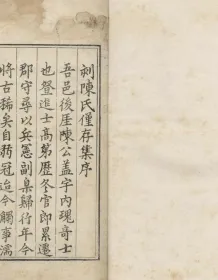 刻陳氏僅存集序
吾邑後厓陳公蓋宇内瑰奇士
也登進士高第歷冬官郎累遷
郡守尋以兵憲副臬歸行年今
將古稀矣自弱冠迄今觸事濡